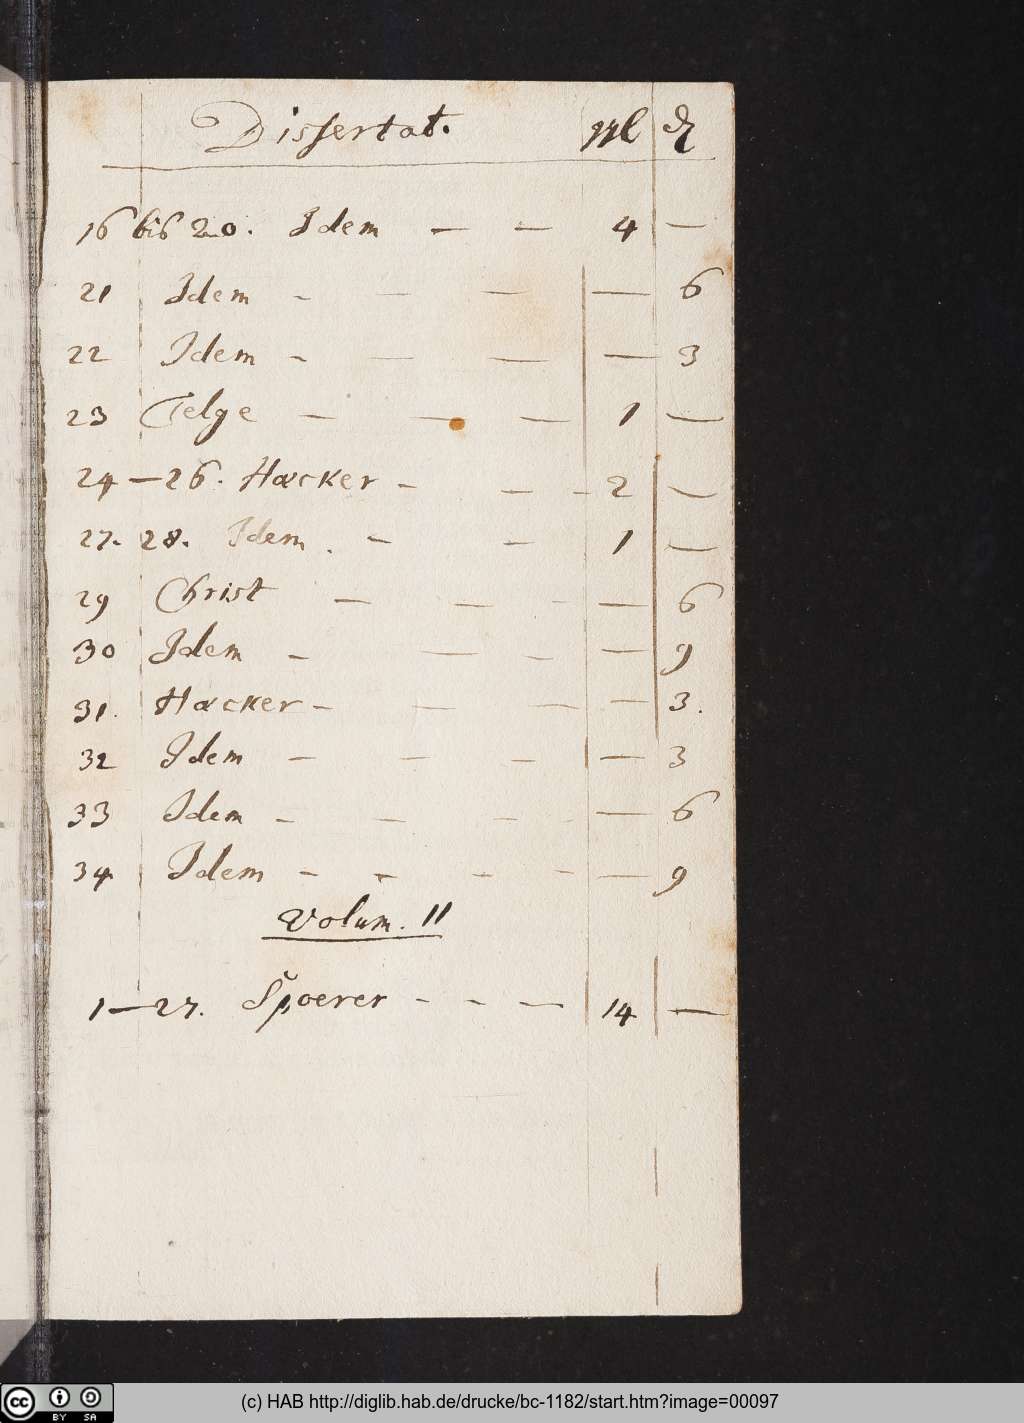 Dissertat. ggl ₰
16 bis 20. Idem — — 4 —
21 Idem - — — — 6
22 Idem - — — — 3
23 Telge — — — 1 —
24 — 26. Hacker - — - 2 —
27. 28. Idem. - — 1 —
29 Christ — — - — 6
30 Idem - — - — 9
31. Hacker - — — — 3.
32 Idem — — — — 3
33 Idem - — - — 6
34 Idem - - - - — 9
Volum. II
1 — 27. Spoerer - - — 14 —
(c) HAB http://diglib.hab.de/drucke/bc-1182/start.htm?image=00097
cc BY SA